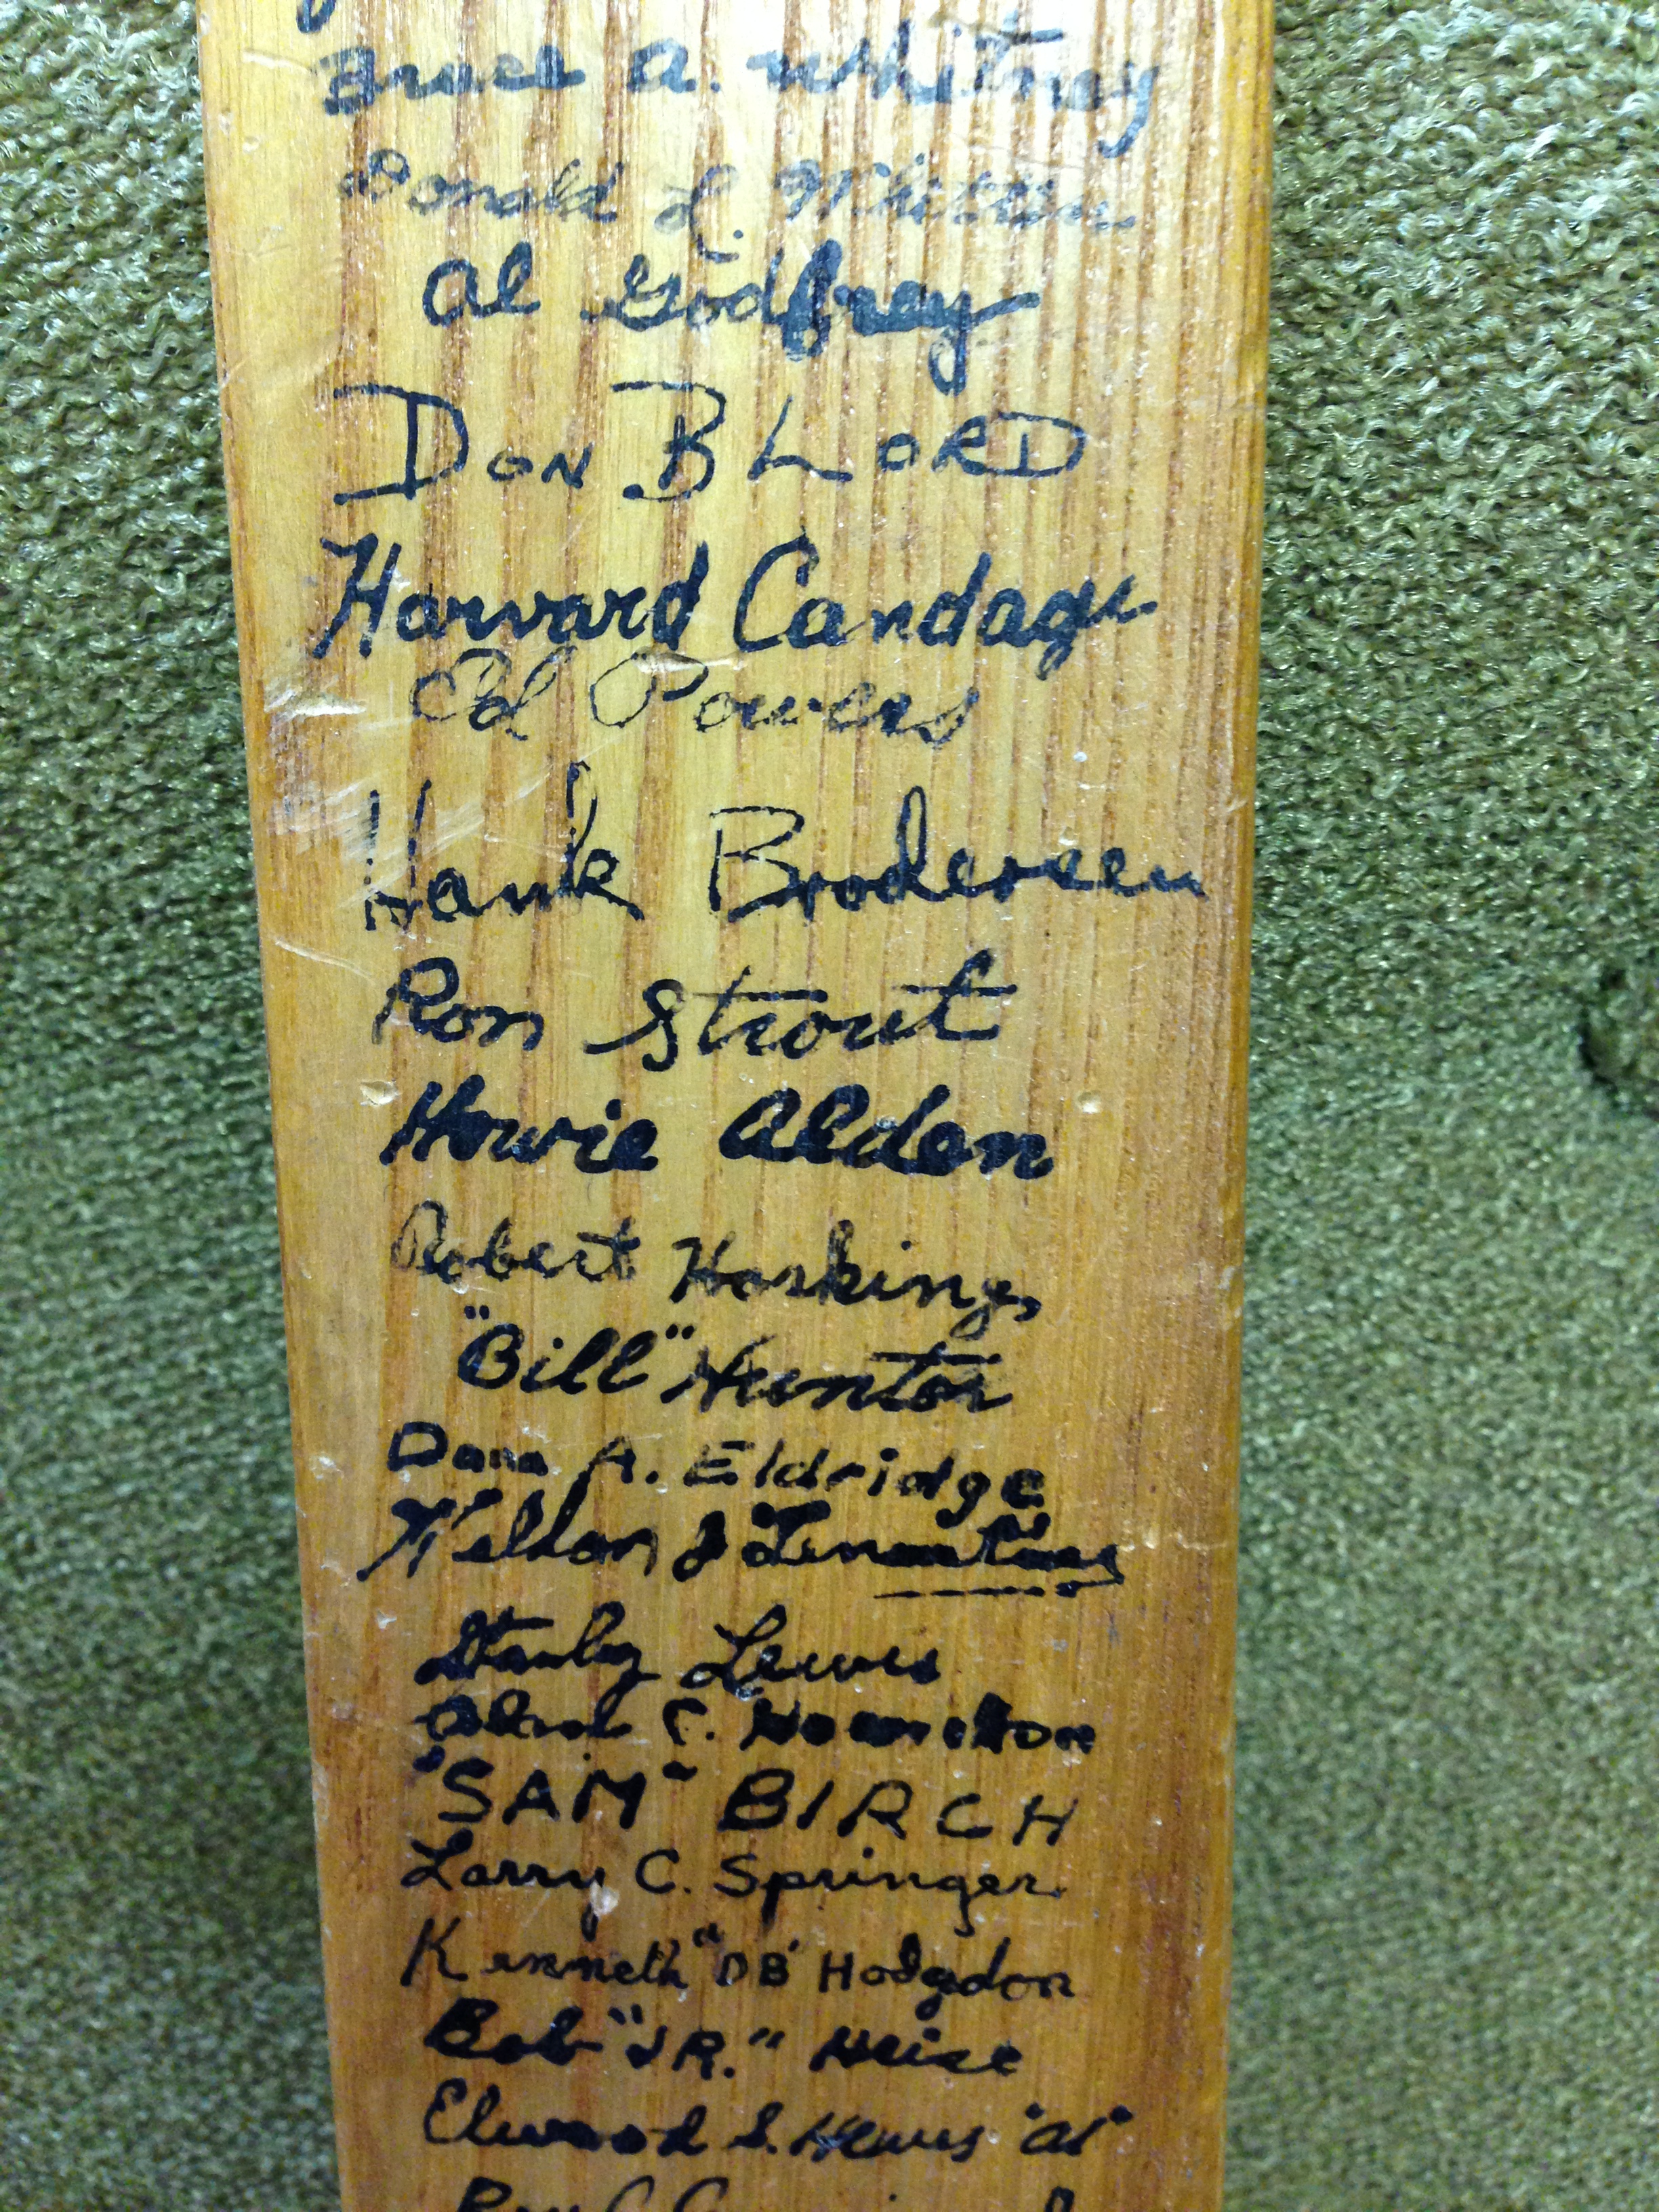 Bruce A. Whitney
Donald L.
Al Godfrey
DON B LORD
Harvard Candage
Ed Powers
Hank Brodersen
Ron Strout
Howie Alden
Robert Hoskings
"Bill" Hunton
Dana A. Eldridge
Weldon J
Stanley Lewis
C. Hamilton
"SAM" BIRCH
Larry C. Springer
Kenneth "DB" Hodgdon
Bob "JR." Heise
Elwood S. Hewes "Al"